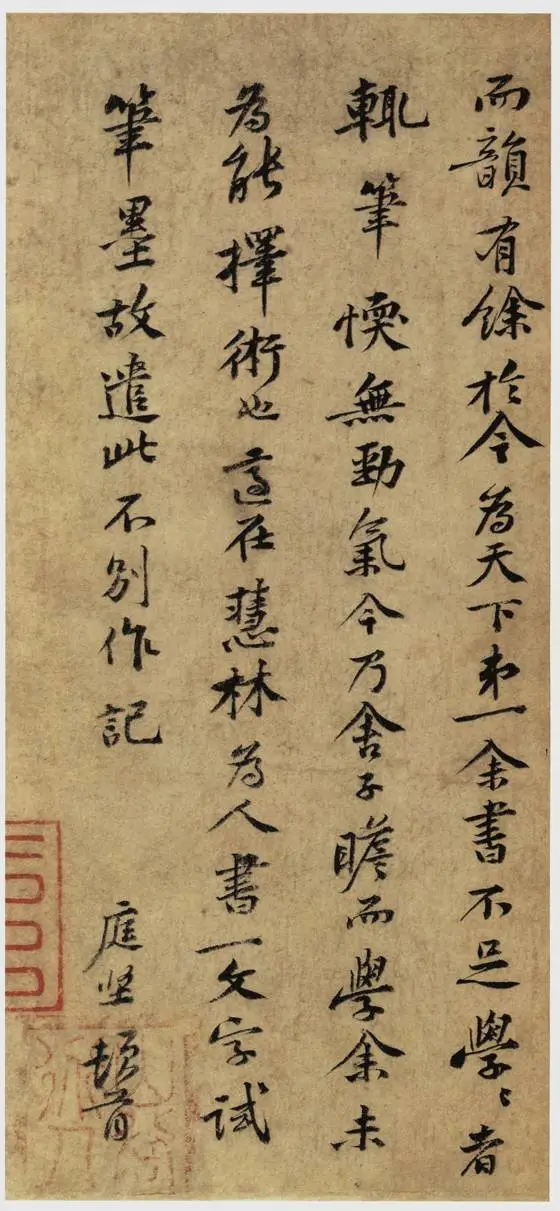 而韻有餘於今為天下第一余書不足學學者
輒筆愞無勁氣今乃舍子瞻而學余未
為能擇術也適在慧林為人書一文字試
筆墨故遣此不別作記
庭堅頓首